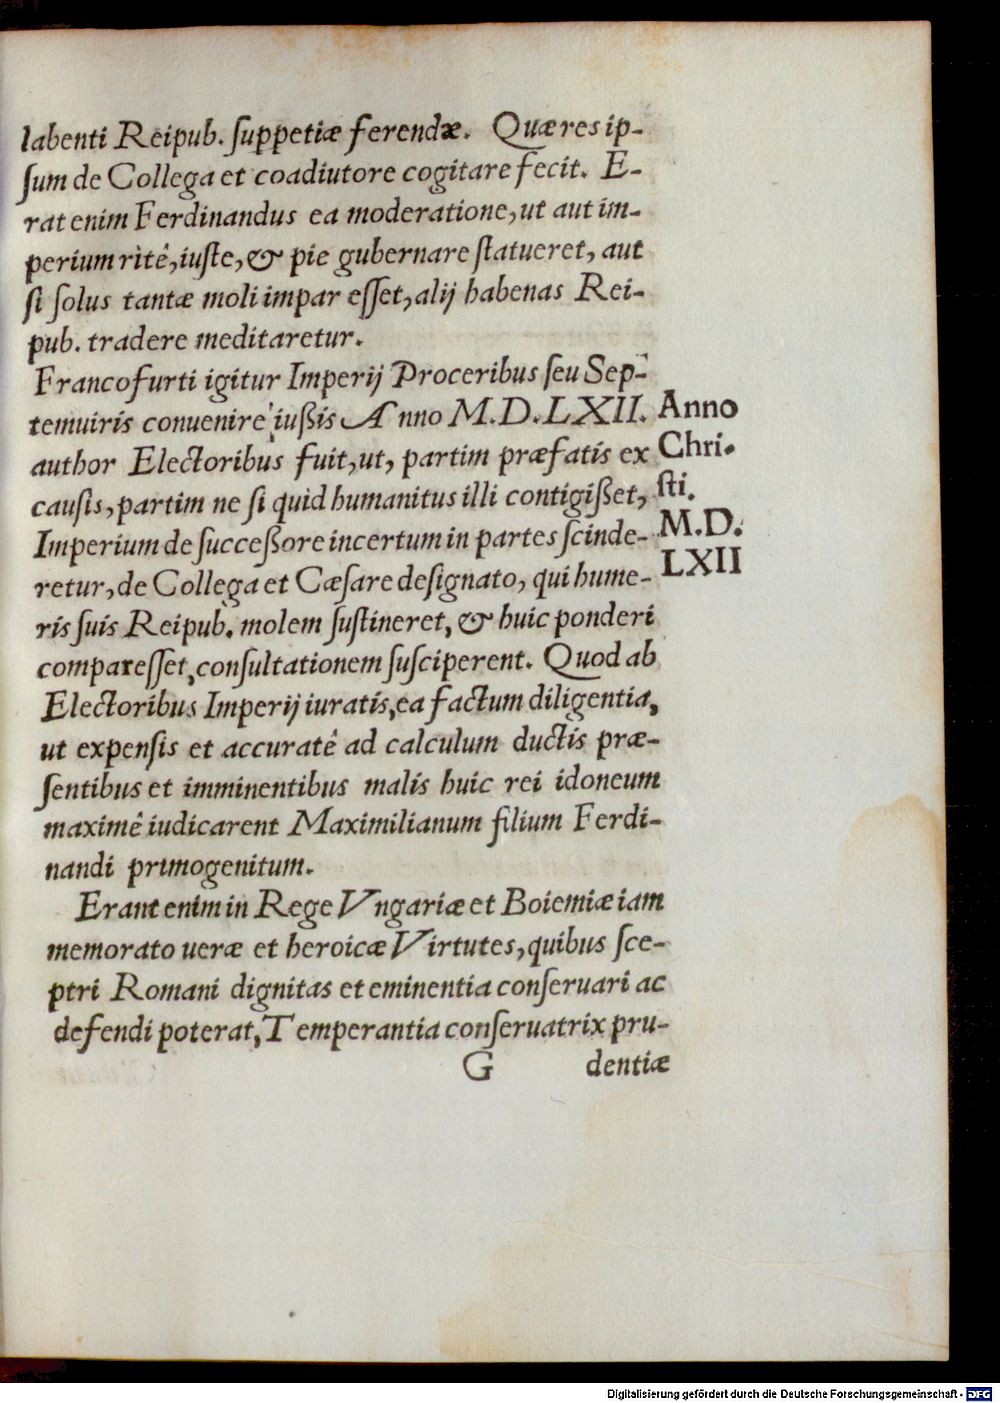 labenti Reipub. ſuppetiæ ferendæ. Quæ res ip-
ſum de Collega et coadiutore cogitare fecit. E-
rat enim Ferdinandus ea moderatione, ut aut im-
perium ritè, iuſte, & pie gubernare ſtatueret, aut
ſi ſolus tantæ moli impar eſſet, alij habenas Rei-
pub. tradere meditaretur.
Francofurti igitur Imperij Proceribus ſeu Sep-
temuiris conuenire iußis Anno M.D.LXII.
author Electoribus fuit, ut, partim præfatis ex
cauſis, partim ne ſi quid humanitus illi contigißet,
Imperium de ſucceßore incertum in partes ſcinde-
retur, de Collega et Cæſare deſignato, qui hume-
ris ſuis Reipub. molem ſuſtineret, & huic ponderi
compar eſſet, conſultationem ſuſciperent. Quod ab
Electoribus Imperij iuratis, ea factum diligentia,
ut expenſis et accuratè ad calculum ductis præ-
ſentibus et imminentibus malis huic rei idoneum
maximè iudicarent Maximilianum filium Ferdi-
nandi primogenitum.
Erant enim in Rege Vngariæ et Boiemiæ iam
memorato ueræ et heroicæ Virtutes, quibus ſce-
ptri Romani dignitas et eminentia conſeruari ac
defendi poterat, Temperantia conſeruatrix pru-
G dentiæ
Anno
Chri-
ſti.
M.D.
LXII
Digitalisierung gefördert durch die Deutsche Forschungsgemeinschaft - DFG